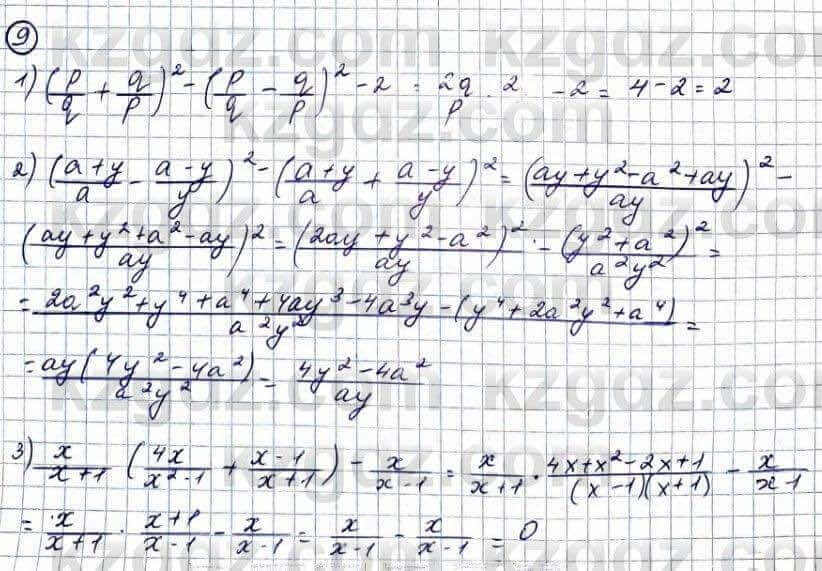 9
1) (p/q + q/p)² - (p/q - q/p)² - 2 = 2q/p · 2 - 2 = 4 - 2 = 2
2) ((a+y)/a - (a-y)/y)² - ((a+y)/a + (a-y)/y)² = ((ay+y²-a²+ay)/ay)² -
((ay+y²+a²-ay)/ay)² = ((2ay+y²-a²)/ay)² - (y²+a²)²/a²y² =
= (2a²y²+y⁴+a⁴+4ay³-4a³y-(y⁴+2a²y²+a⁴))/a²y² =
= ay(4y²-4a²)/a²y² = (4y²-4a²)/ay
3) x/(x+1) (4x/(x²-1) + (x-1)/(x+1)) - x/(x-1) = x/(x+1) · (4x+x²-2x+1)/((x-1)(x+1)) - x/(x-1)
= x/(x+1) · (x+1)/(x-1) - x/(x-1) = x/(x-1) - x/(x-1) = 0
kzgdz.com